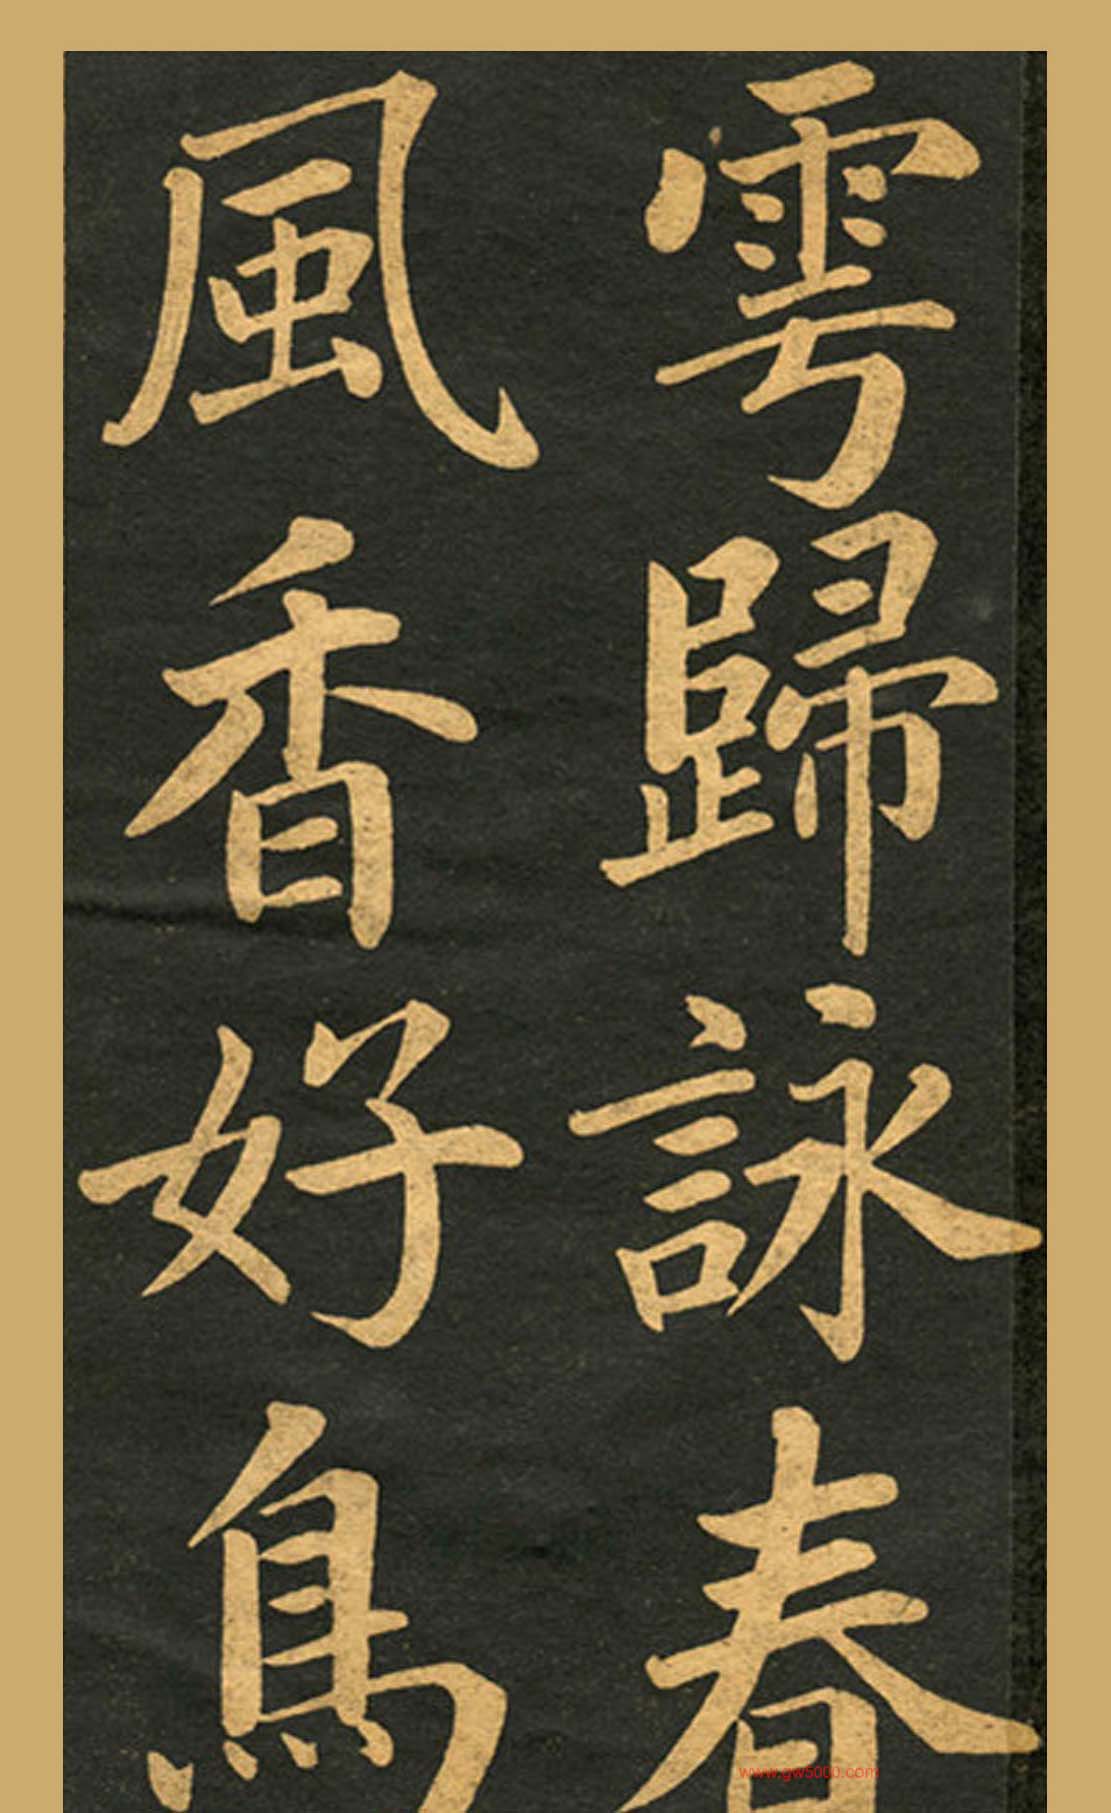 雩歸詠春
風香好鳥
www.gw5000.com